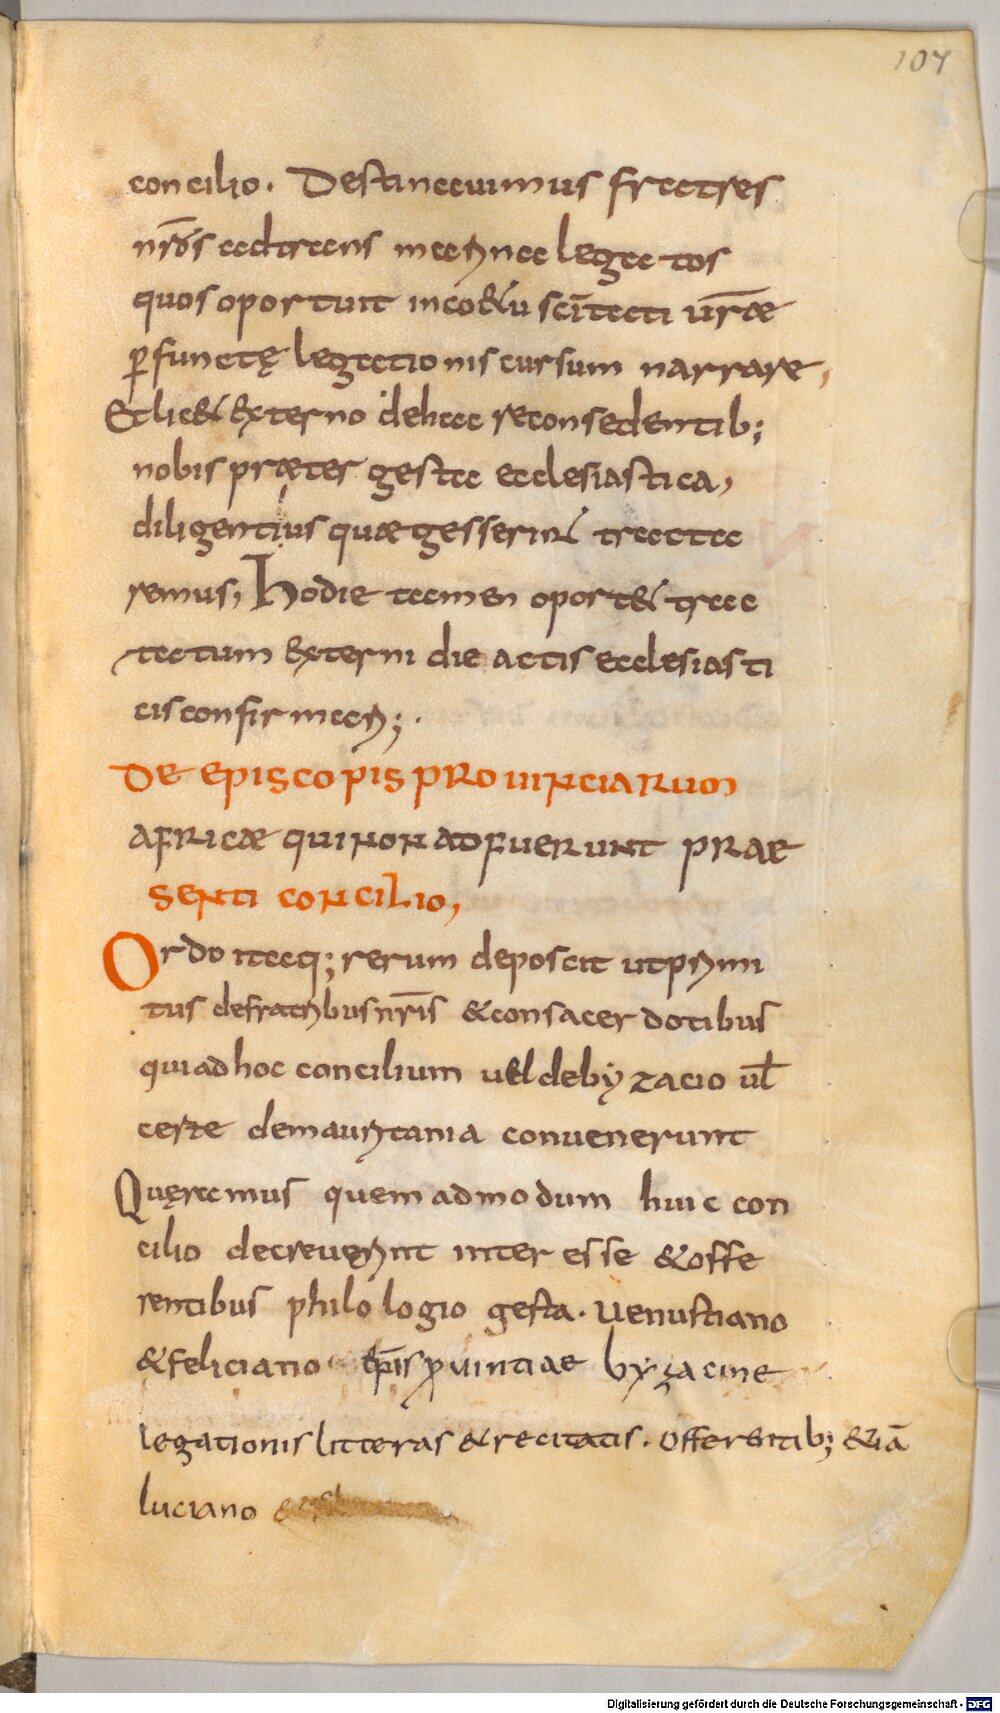 107
concilio. Destinauimus fratres
nr̄os ad trans marina legatos
quos oportuit in coetu sc̄itati ur̄ae
ꝑfunctę legationis cursum narrare,
Et licet externo die hac re consedentib;
nobis præter gesta ecclesiastica,
diligentius quae gesserint tracta
remus, Hodie tamen oportet trac
tatum externi die actis ecclesiasti
cis confirmari;.
De episcopis prouinciarum
africæ qui non adfuerunt præ
senti concilio,
Ordo itaq; rerum deposcit ut primi
tus de fratribus nr̄is & consacerdotibus
qui ad hoc concilium uel de byzacio ul̄
certe de mauritania conuenerunt
Quęramus quemadmodum huic con
cilio decreuerint interesse & offe
rentibus philologio gesta. Uenustiano
& feliciano ep̄is ꝓuintiae byzacine
legationis litteras & recitatis. Offerentib; & iā
luciano
Digitalisierung gefördert durch die Deutsche Forschungsgemeinschaft - DFG